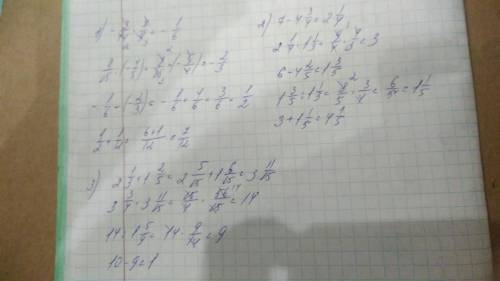 1) - 3/4 · 4/9 = - 1/6
8/15 · (- 5/4) = - 2/3
- 1/6 - (- 2/3) = - 1/6 + 4/6 = 3/6 = 1/2
1/2 + 1/12 = 6+1/12 = 7/12
2) 7 - 4 3/4 = 2 1/4
2 1/4 · 1 1/3 = 9/4 · 4/3 = 3
6 - 4 2/5 = 1 3/5
1 3/5 : 1 1/3 = 8/5 · 3/4 = 6/5 = 1 1/5
3 + 1 1/5 = 4 1/5
3) 2 1/3 + 1 2/5 = 2 5/15 + 1 6/15 = 3 11/15
3 3/4 · 3 11/15 = 15/4 · 56/15 = 14
14 : 1 5/9 = 14 · 9/14 = 9
10 - 9 = 1